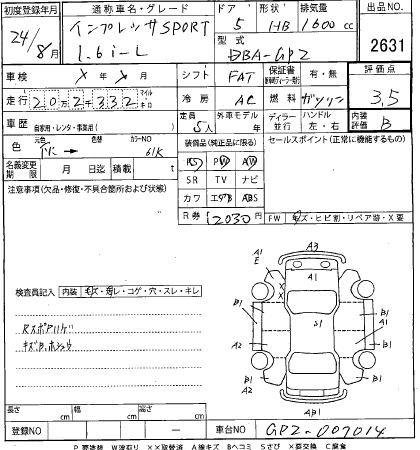 初度登録年月 通称車名・グレード ドア 形状 排気量 出品NO
24/8月 インプレッサ SPORT 1.6i-L 5 HB 1600cc 2631
型式 DBA-GP2
車検 X年X月 シフト FAT 保証書 有・無 評価点
走行 202千332 マイル キロ 冷房 AC 燃料 ガソリン 3.5
車歴 自家用・レンタ・事業用( ) 定員 5人 外車モデル 年 ディーラー 並行 ハンドル 左・右 内装評価 B
色 元色 カラーNO 61K 装備品(純正品に限る) セールスポイント(正常に機能するもの)
名義変更期限 月 日迄 積載 t PS PW AW
SR TV ナビ
注意事項(欠品・修復・不具合箇所および状態) カワ エアB ABS
R 12030円 FW キズ・ヒビ割・リペア跡・X要
検査員記入 内装 キズ・汚レ・コゲ・穴・スレ・キレ
Rスポアハゲ
A1 E A3
A1
B1 B1
A2 S1 A1
B1 B1
A2 B1
AB1
長さ cm 幅 cm 高さ cm
登録NO 車台NO GP2-007014
P要塗装 W波有り XX取替済 A線キズ Bヘコミ Sさび X要交換 C腐食